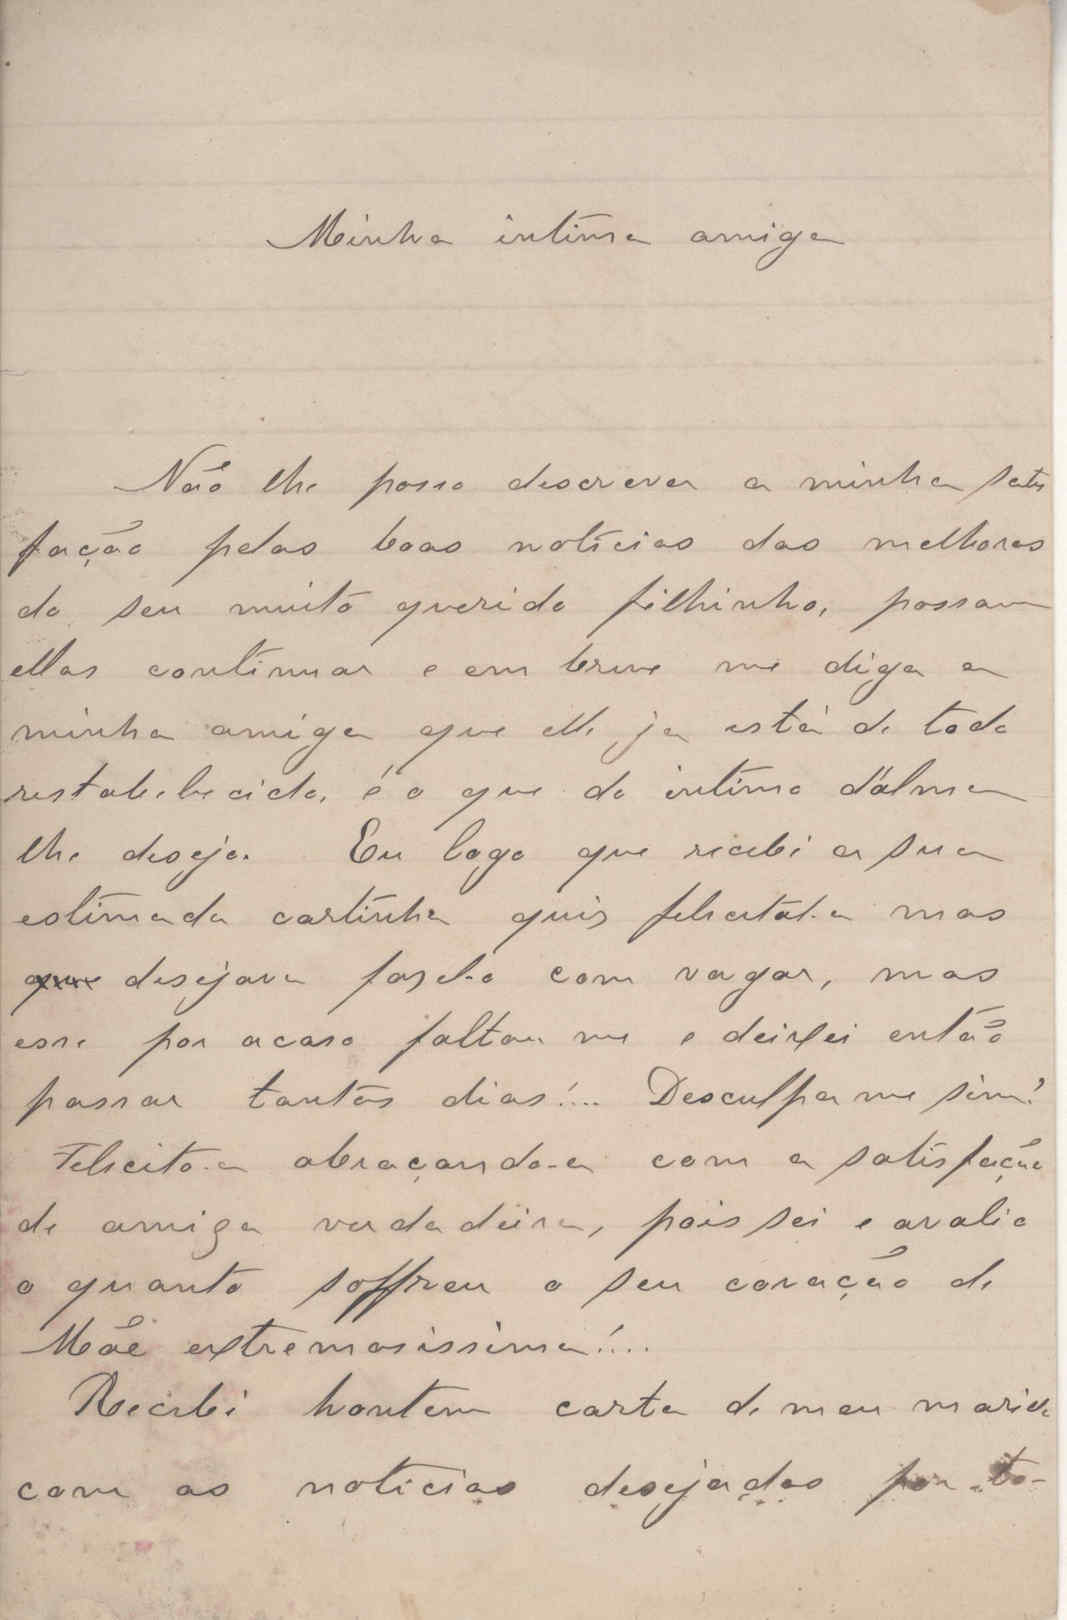 Minha intima amiga
Não lhe posso descrever a minha satis
fação pelas boas noticias das melhoras
do seu muito querido filhinho, possam
ellas continuar e em breve me diga a
minha amiga que elle ja está de todo
restabelecido, é o que do intimo d'alma
lhe desejo. Eu logo que recebi a sua
estimada cartinha quis felicital-a mas
que desejava fazel-o com vagar, mas
esse por acaso faltou me e deixei então
passar tantos dias!... Desculpa me sim?
Felicito-a abraçando-a com a satisfação
de amiga verdadeira, pois sei e avalio
o quanto soffreu o seu coração de
Mãe extremosissima!...
Recebi hontem carta de meu marido
com as noticias desejadas por to-